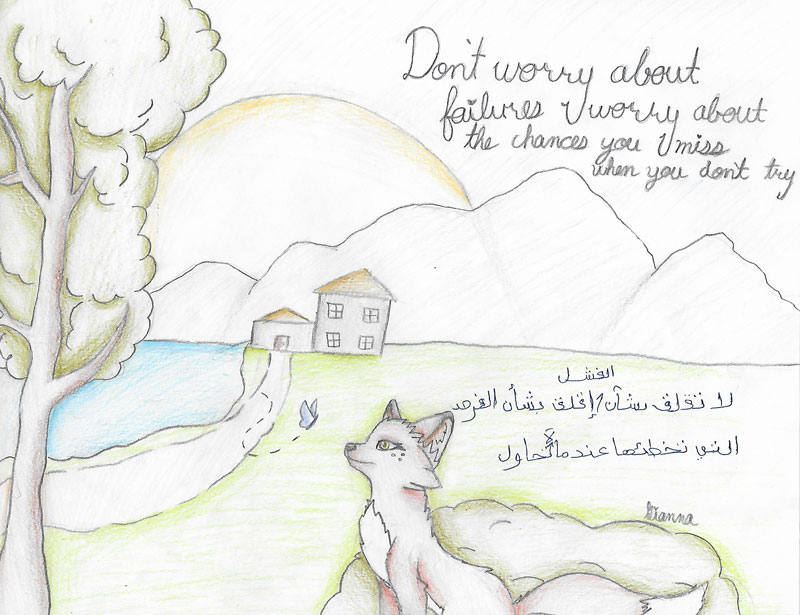 Don't worry about
failures worry about
the chances you miss
when you don't try
الفشل
لا تقلق بشأن / إقلق بشأن الفرص
التي تخطئها عندما لا تحاول
Dianna